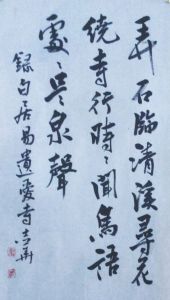 弄石臨清溪尋花
繞寺行時々聞鳥語
處々是泉聲
錄白居易遺愛寺